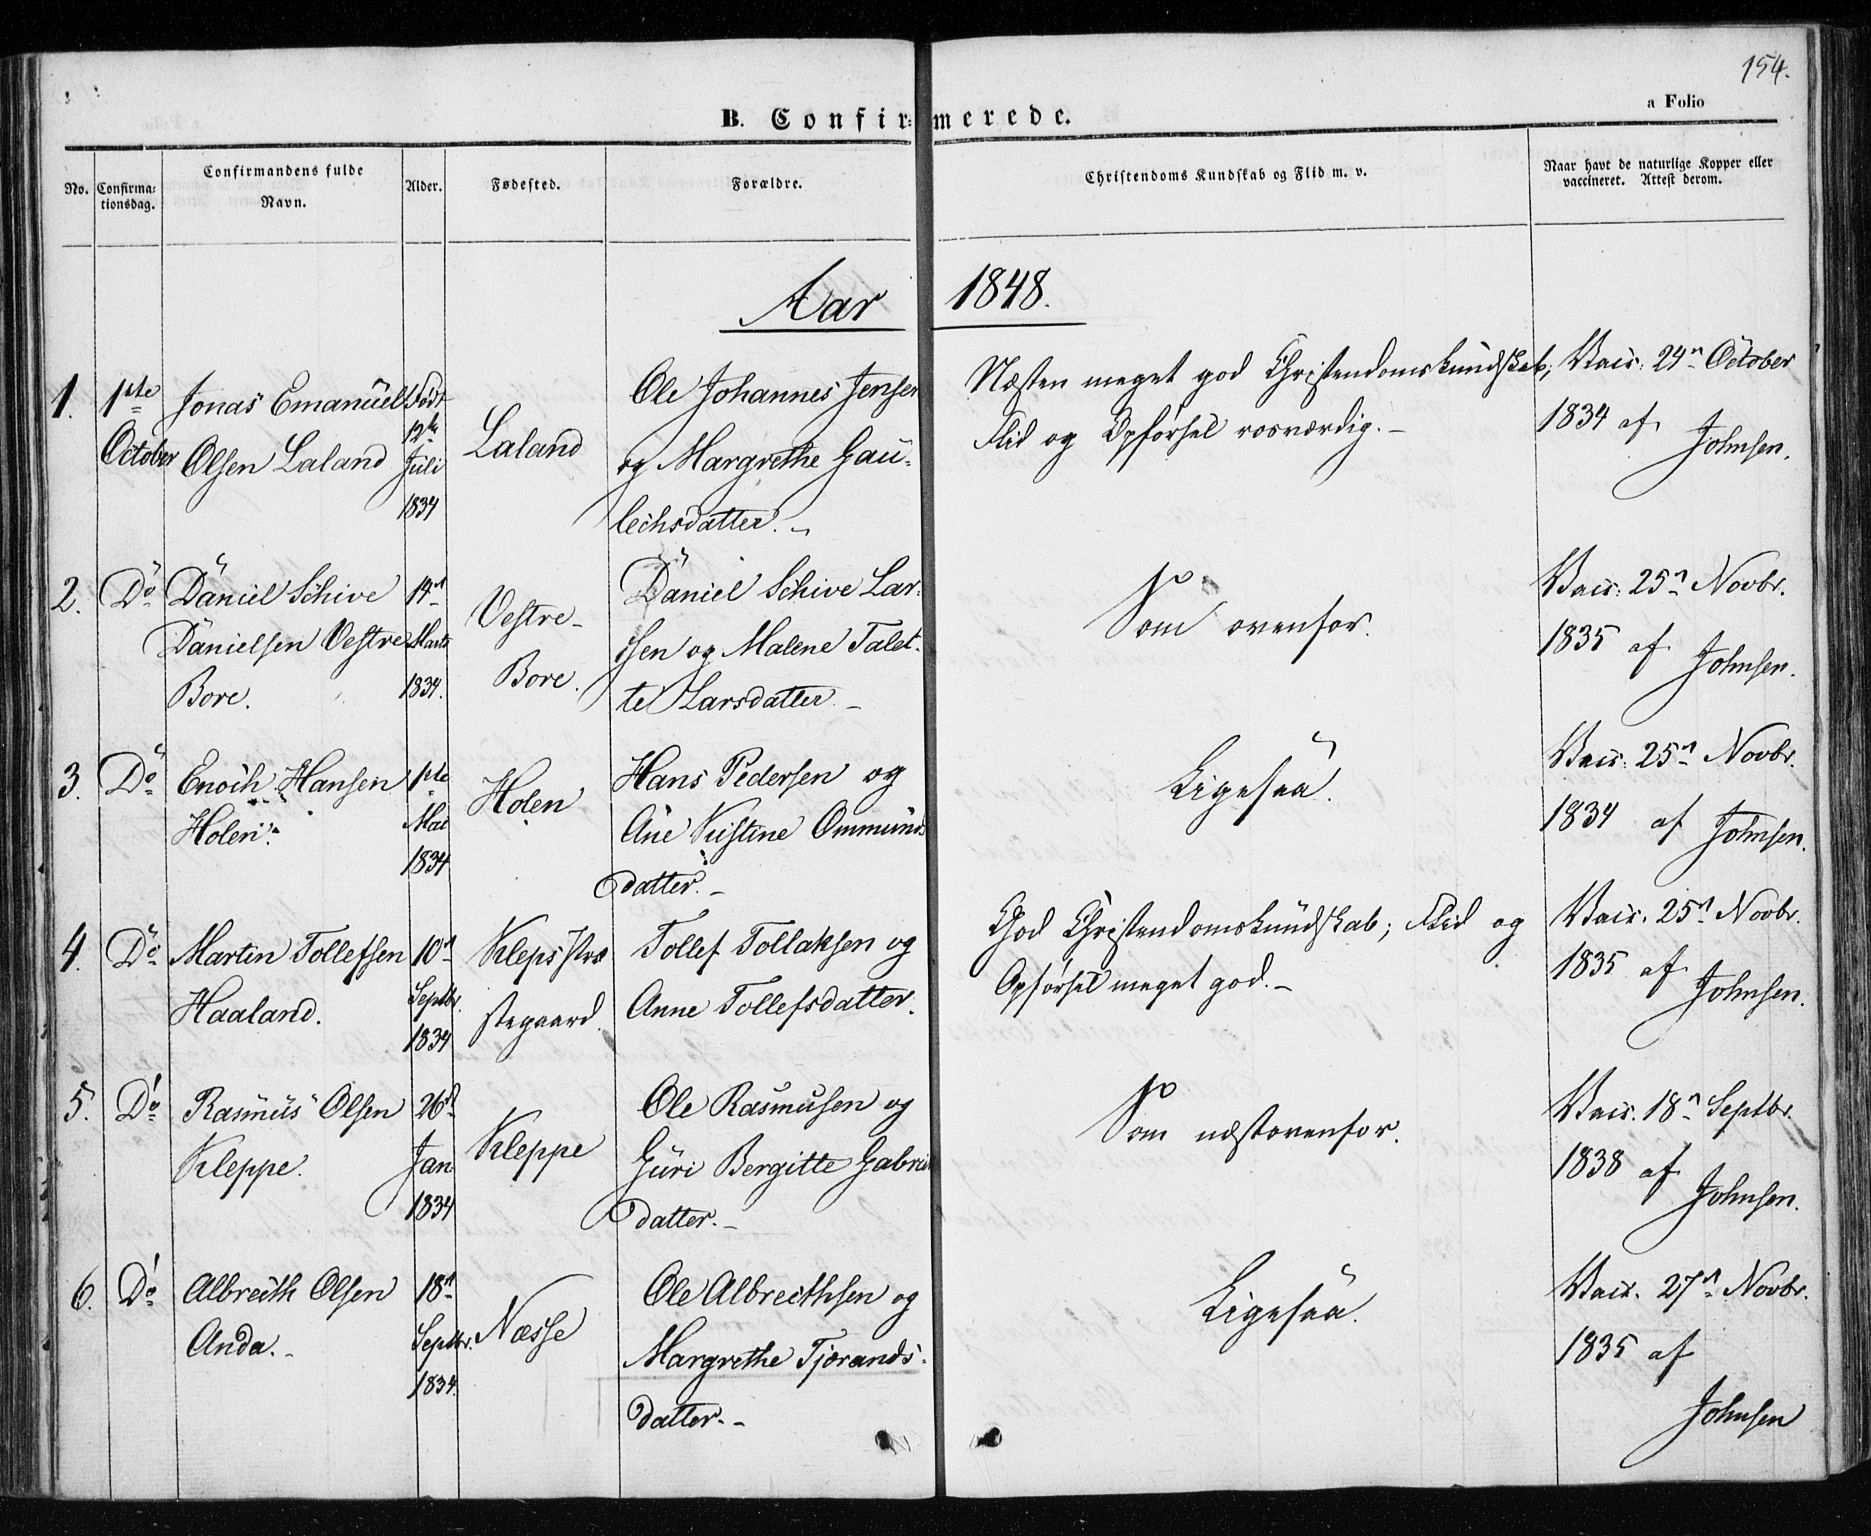 154.
a Folio
B. Confir= merede.
No.
Confirma=
tionsdag.
Confirmandens fulde
Navn.
Alder.
Fødested.
Forældre.
Christendoms Kundskab og Flid m. v.
Naar havt de naturlige Kopper eller
vaccineret. Attest derom.
Aar 1848.
1.
1ste
October
Jonas Emanuel
Olsen Laland
Født
12te
Juli
1834
Laland
Ole Johannes Jensen
og Margrethe Gau=
lechsdatter. –
Næsten meget god Christendomskundskab,
Flid og Opførsel rosværdig. –
Vacc: 24n October
1834 af
Johnsen.
2.
Do
Daniel Schive
Danielsen Vestre
Bore.
14n
Marts
1834.
Vestre-
Bore.
Daniel Schive Lar=
sen og Malene Talet=
te Larsdatter –
Som ovenfor.
Vacc: 25n Novbr.
1835 af
Johnsen.
3.
Do
Enoch Hansen
Holen.
1ste
Mai
1834
Holen
Hans Pedersen og
Ane Kistine Ommunds
datter. –
Ligesaa.
Vacc: 25n Novbr.
1834 af Johnsen.
4.
Do
Martin Tollefsen
Haaland.
10n
Septbr.
1834
Kleps Præ
stegaard.
Tollef Tollaksen og
Anne Tollefsdatter.
God Christendomskundskab; Flid og
Opførsel meget god. –
Vacc. 25n Novbr.
1835 af
Johnsen.
5.
Do
Rasmus Olsen
Kleppe.
26n
Jan
1834
Kleppe
Ole Rasmusen og
Guri Bergitte Gabriels
datter. –
Som næstovenfor.
Vacc. 18n Septbr.
1838 af
Johnsen.
6.
Do
Albrecth Olsen
Anda. –
18n
Septbr.
1834.
Næsse
Ole Albrecthsen og
Margrethe Tjørands=
datter. –
Ligesaa.
Vacc. 27n Novbr.
1835 af
Johnsen